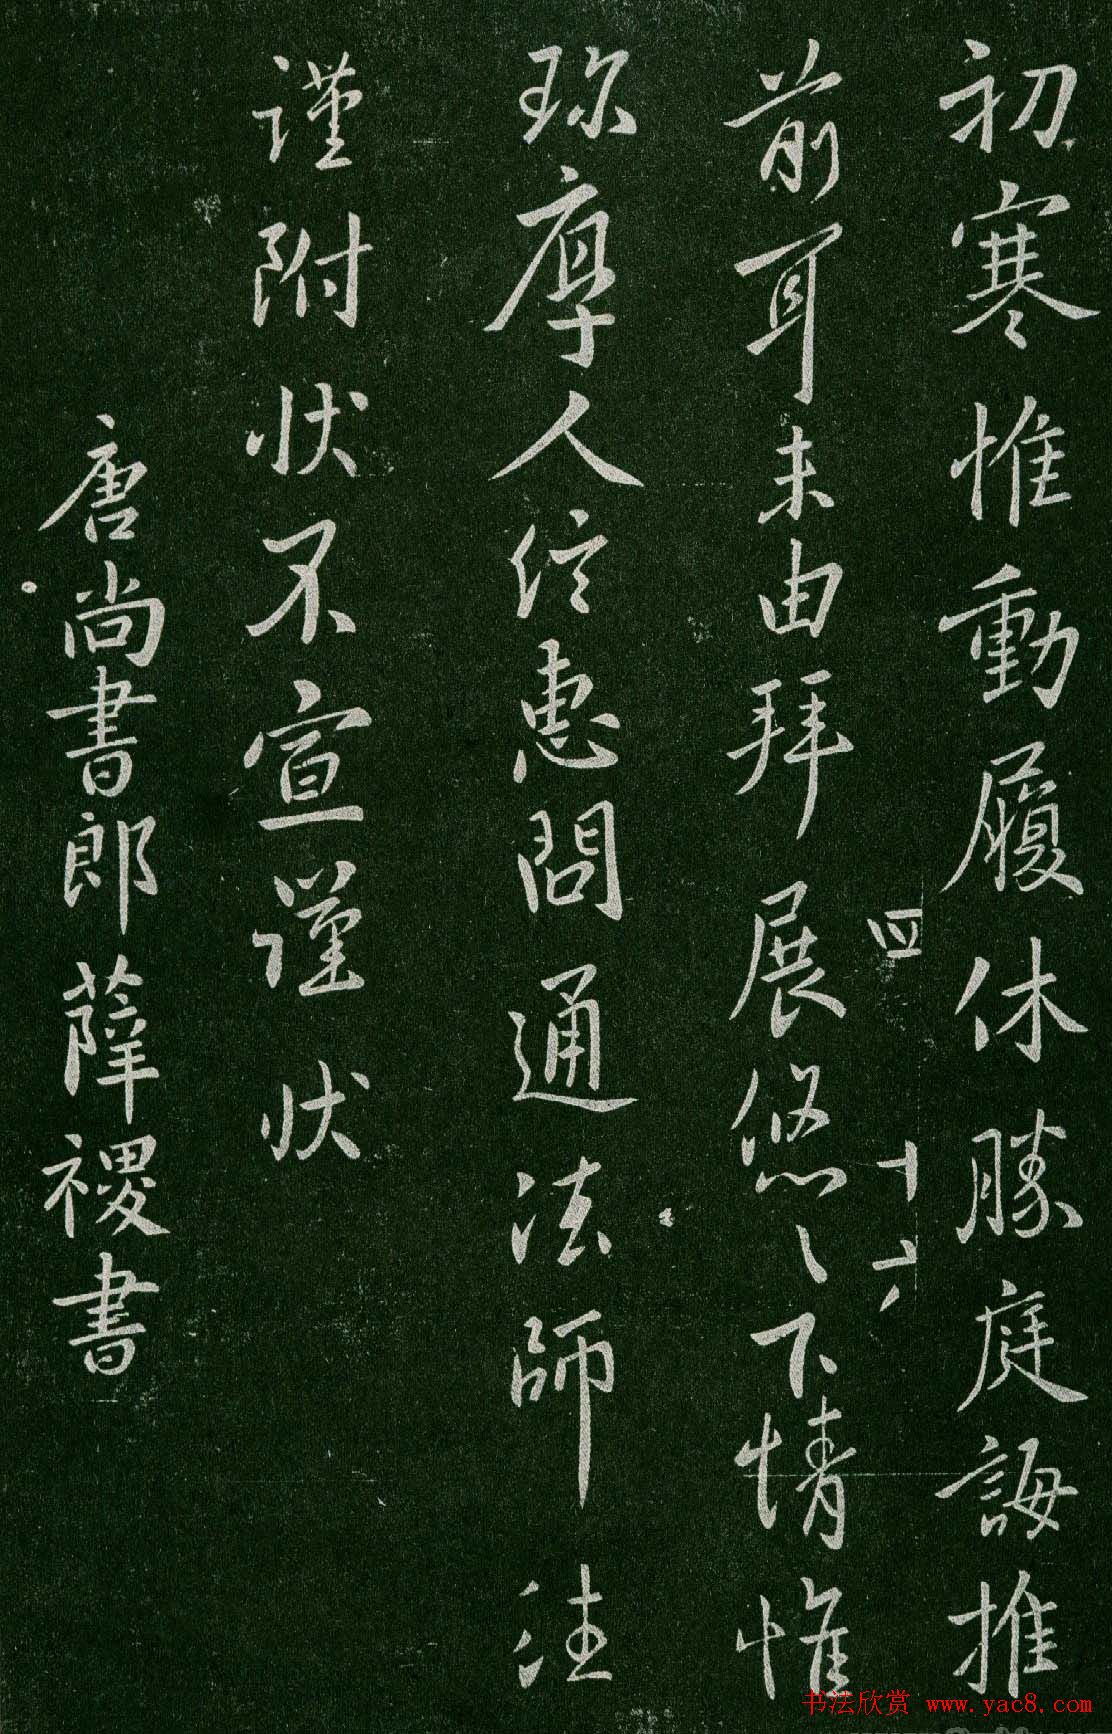 初寒惟動履休勝庭誨推
四 十六
前耳未由拜展悠〻下情惟
珎厚人信惠問通法師往
謹附状不宣謹状
唐尚書郎薛禝書
书法欣赏 www.yac8.com